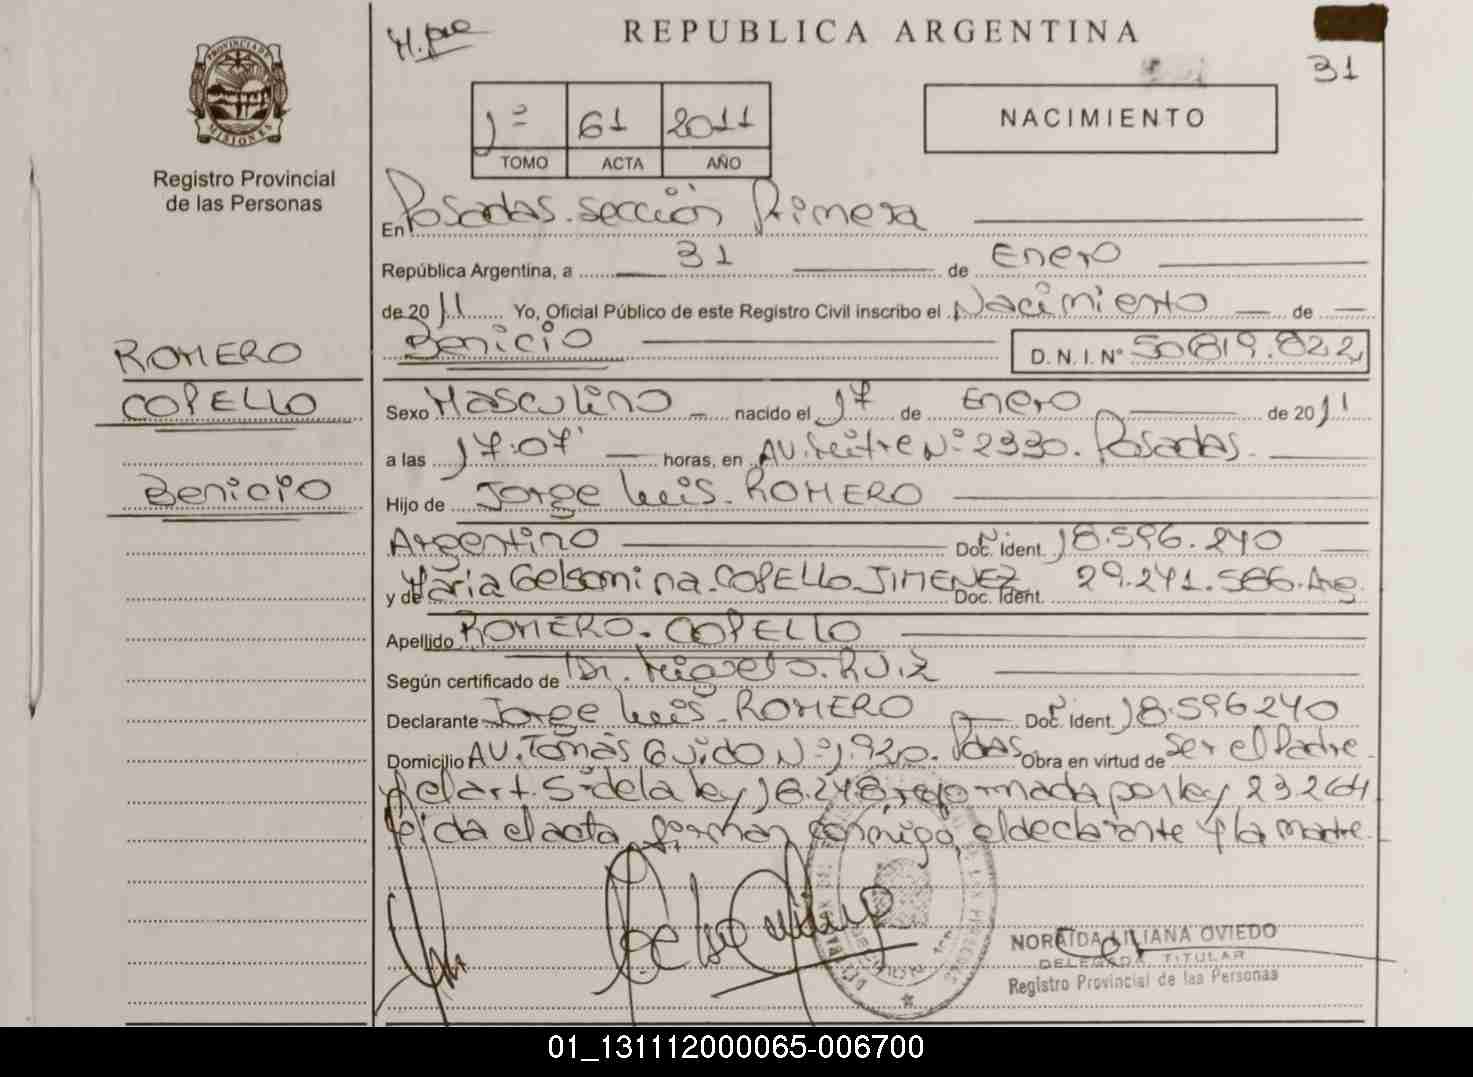 PROVINCIA DE
MISIONES
Registro Provincial
de las Personas
ROMERO
COPELLO
Benicio
REPUBLICA ARGENTINA
31
1º 61 2011
TOMO ACTA AÑO
NACIMIENTO
En Posadas. sección Primera
República Argentina, a 31 de Enero
de 2011 Yo, Oficial Público de este Registro Civil inscribo el Nacimiento de
Benicio D.N.I. Nº 50.819.822
Sexo Masculino nacido el 17 de Enero de 2011
a las 17:07' horas, en AV. Mitre Nº 2330. Posadas.
Hijo de Jorge Luis. ROMERO
Argentino Doc. Ident. 18.596.240
y de Maria Gelsomina. COPELLO JIMENEZ Doc. Ident. 29.241.586. Arg.
Apellido ROMERO. COPELLO
Según certificado de Dr. Miguel O. RUIZ
Declarante Jorge Luis. ROMERO Doc. Ident. 18.596240
Domicilio AV. Tomàs Guido Nº 1.920. Pdas Obra en virtud de Ser el Padre
y el art. 5º de la ley 18.248 reformada por ley 23264
leida el acta, firman conmigo, el declarante y la madre.
NORAIDA LILIANA OVIEDO
DELEGADA TITULAR
Registro Provincial de las Personas
01_131112000065-006700